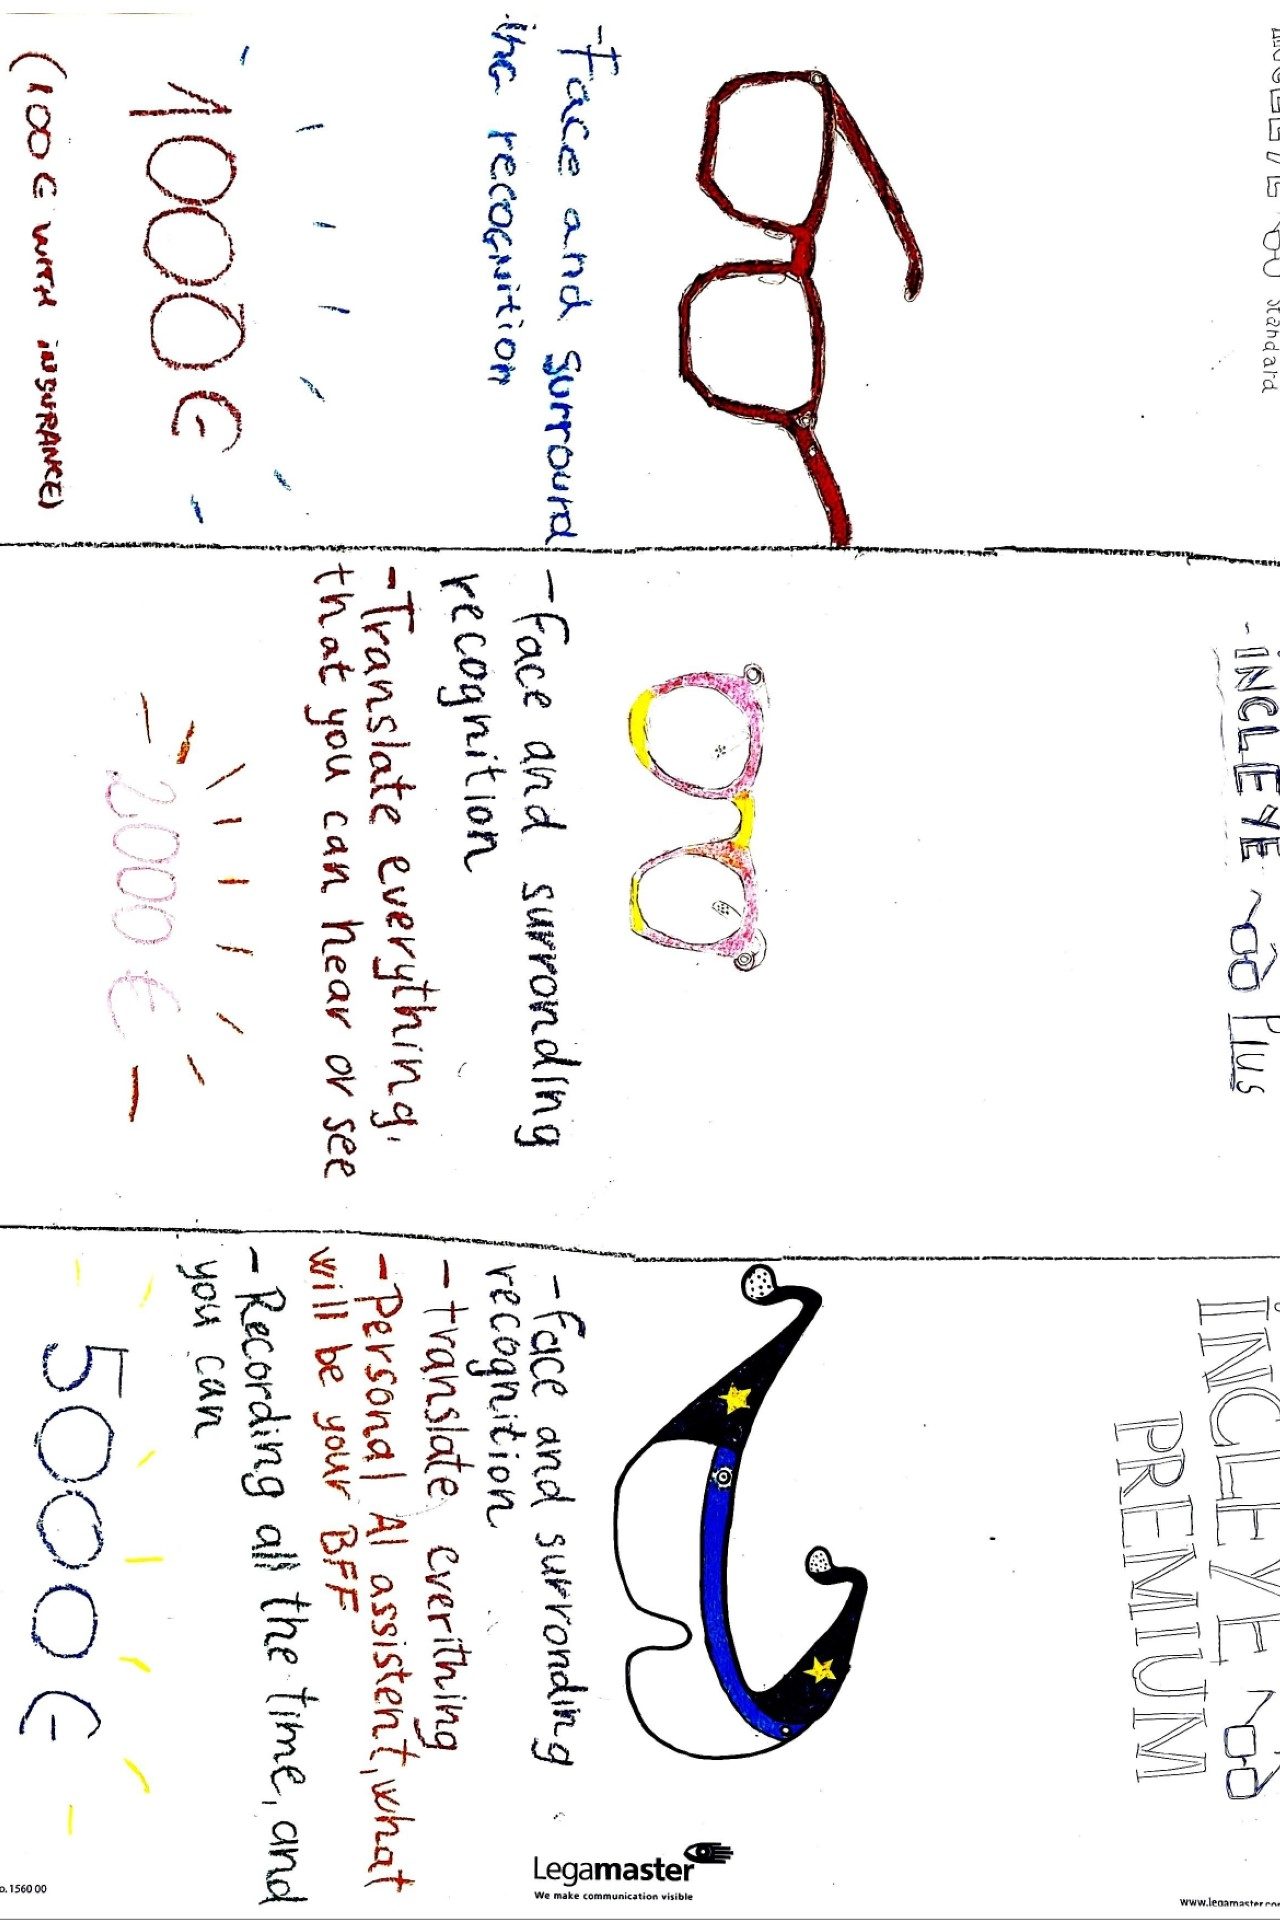 INCLEYE Standard
-Face and surround
ing recognition
1000 €
(100 € WITH INSURANCE)
-INCLEYE Plus
-Face and surronding
recognition
-Translate everything,
that you can hear or see
2000 €
INCLEYE
PREMIUM
-Face and surronding
recognition
-translate everithing
-Personal AI assistent, what
will be your BFF
-Recording all the time, and
you can
5000 €
Legamaster
We make communication visible
www.legamaster.com
o. 1560 00